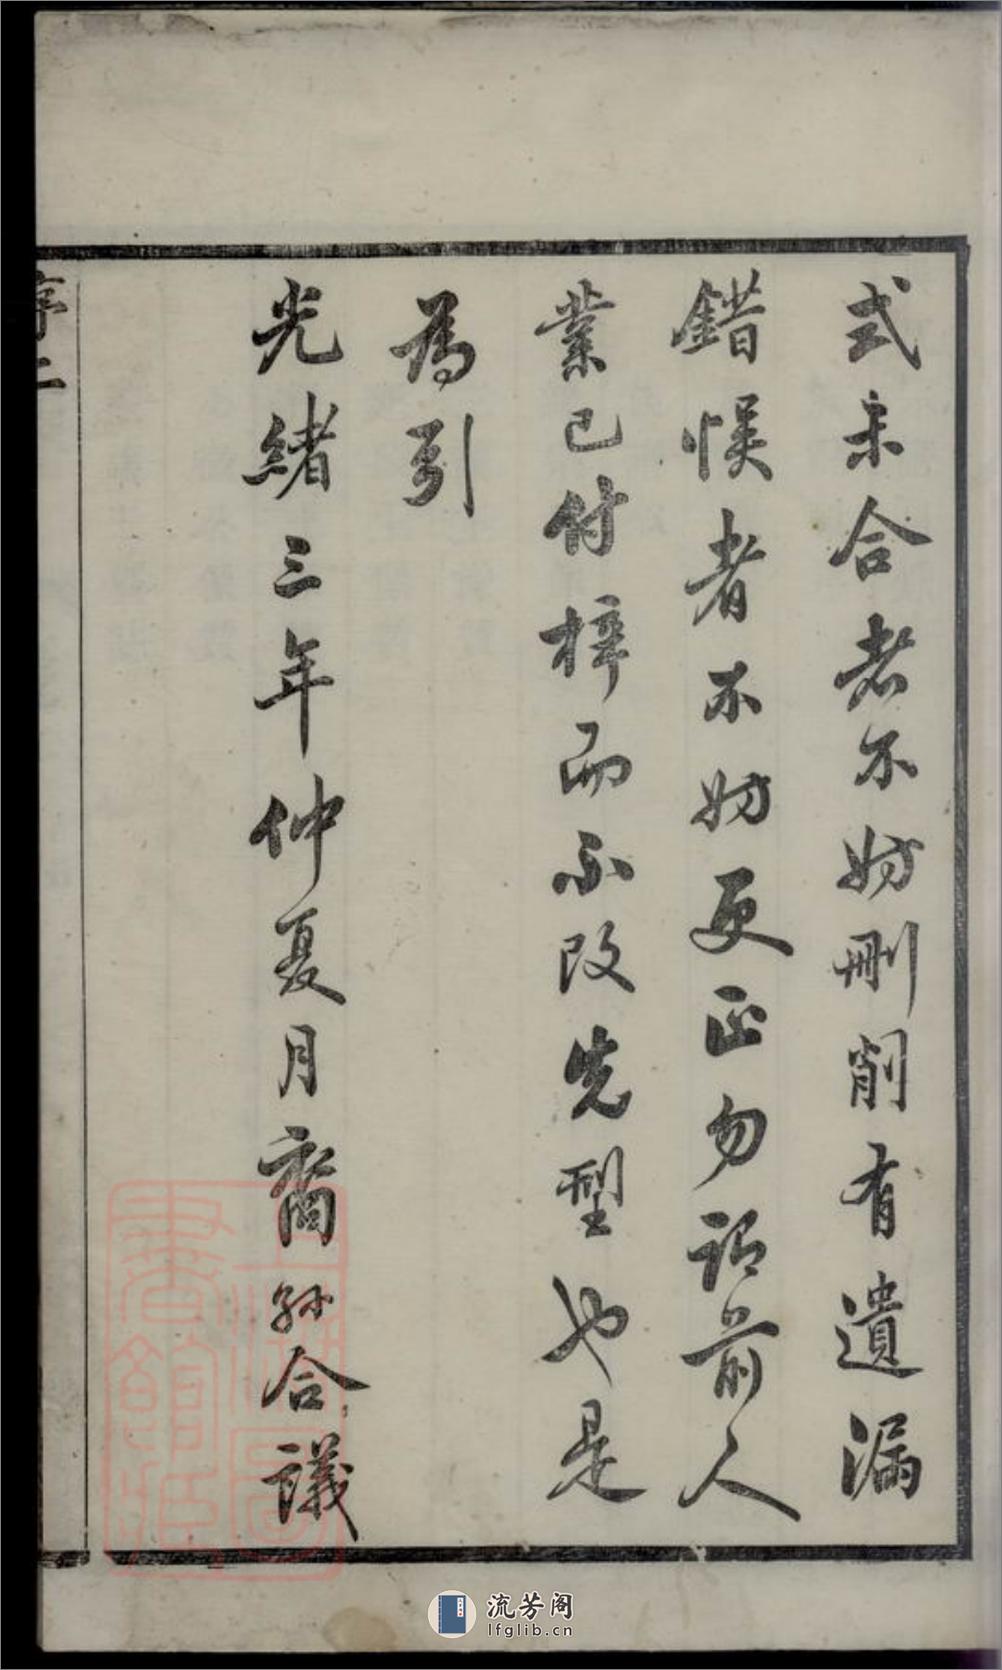 式未合者不妨刪削有遺漏
錯悮者不妨更正勿謂前人
業已付梓而不改先型也是
為引
光緒三年仲夏月裔孫合議
序二
上海圖
書館藏
流芳阁
lfglib.cn